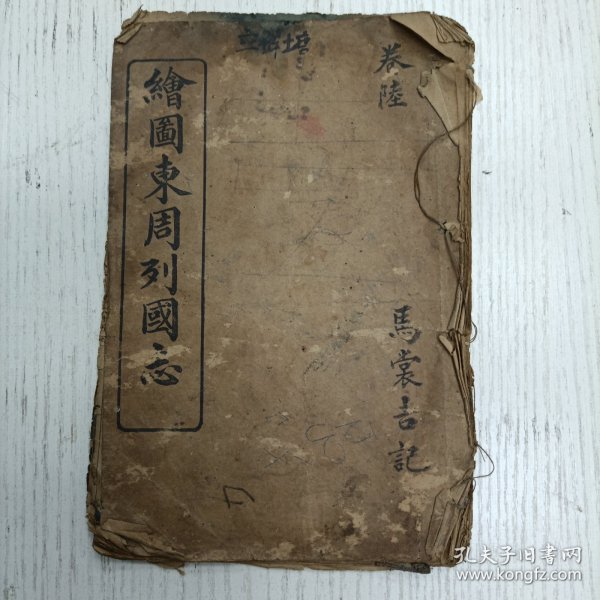 卷陸
馬裳吉記
繪圖東周列國志
孔夫子旧书网
www.kongfz.com